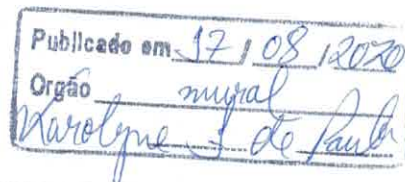 Publicado em 17 / 08 / 2020
Orgão mural
Karolyne S de Paula